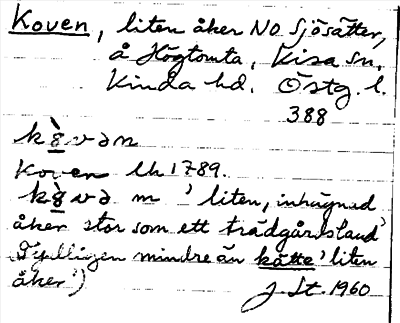 Koven, liten åker NO Sjösätter,
å Högtomta, Kisa sn.
Kinda hd. Östg. l.
388
kȣ̀vən
Koven Lh 1789.
kȣ̀və m 'liten, inhägnad
åker stor som ett trädgårdsland'
(Tydligen mindre än kätte 'liten
åker')
J. St. 1960